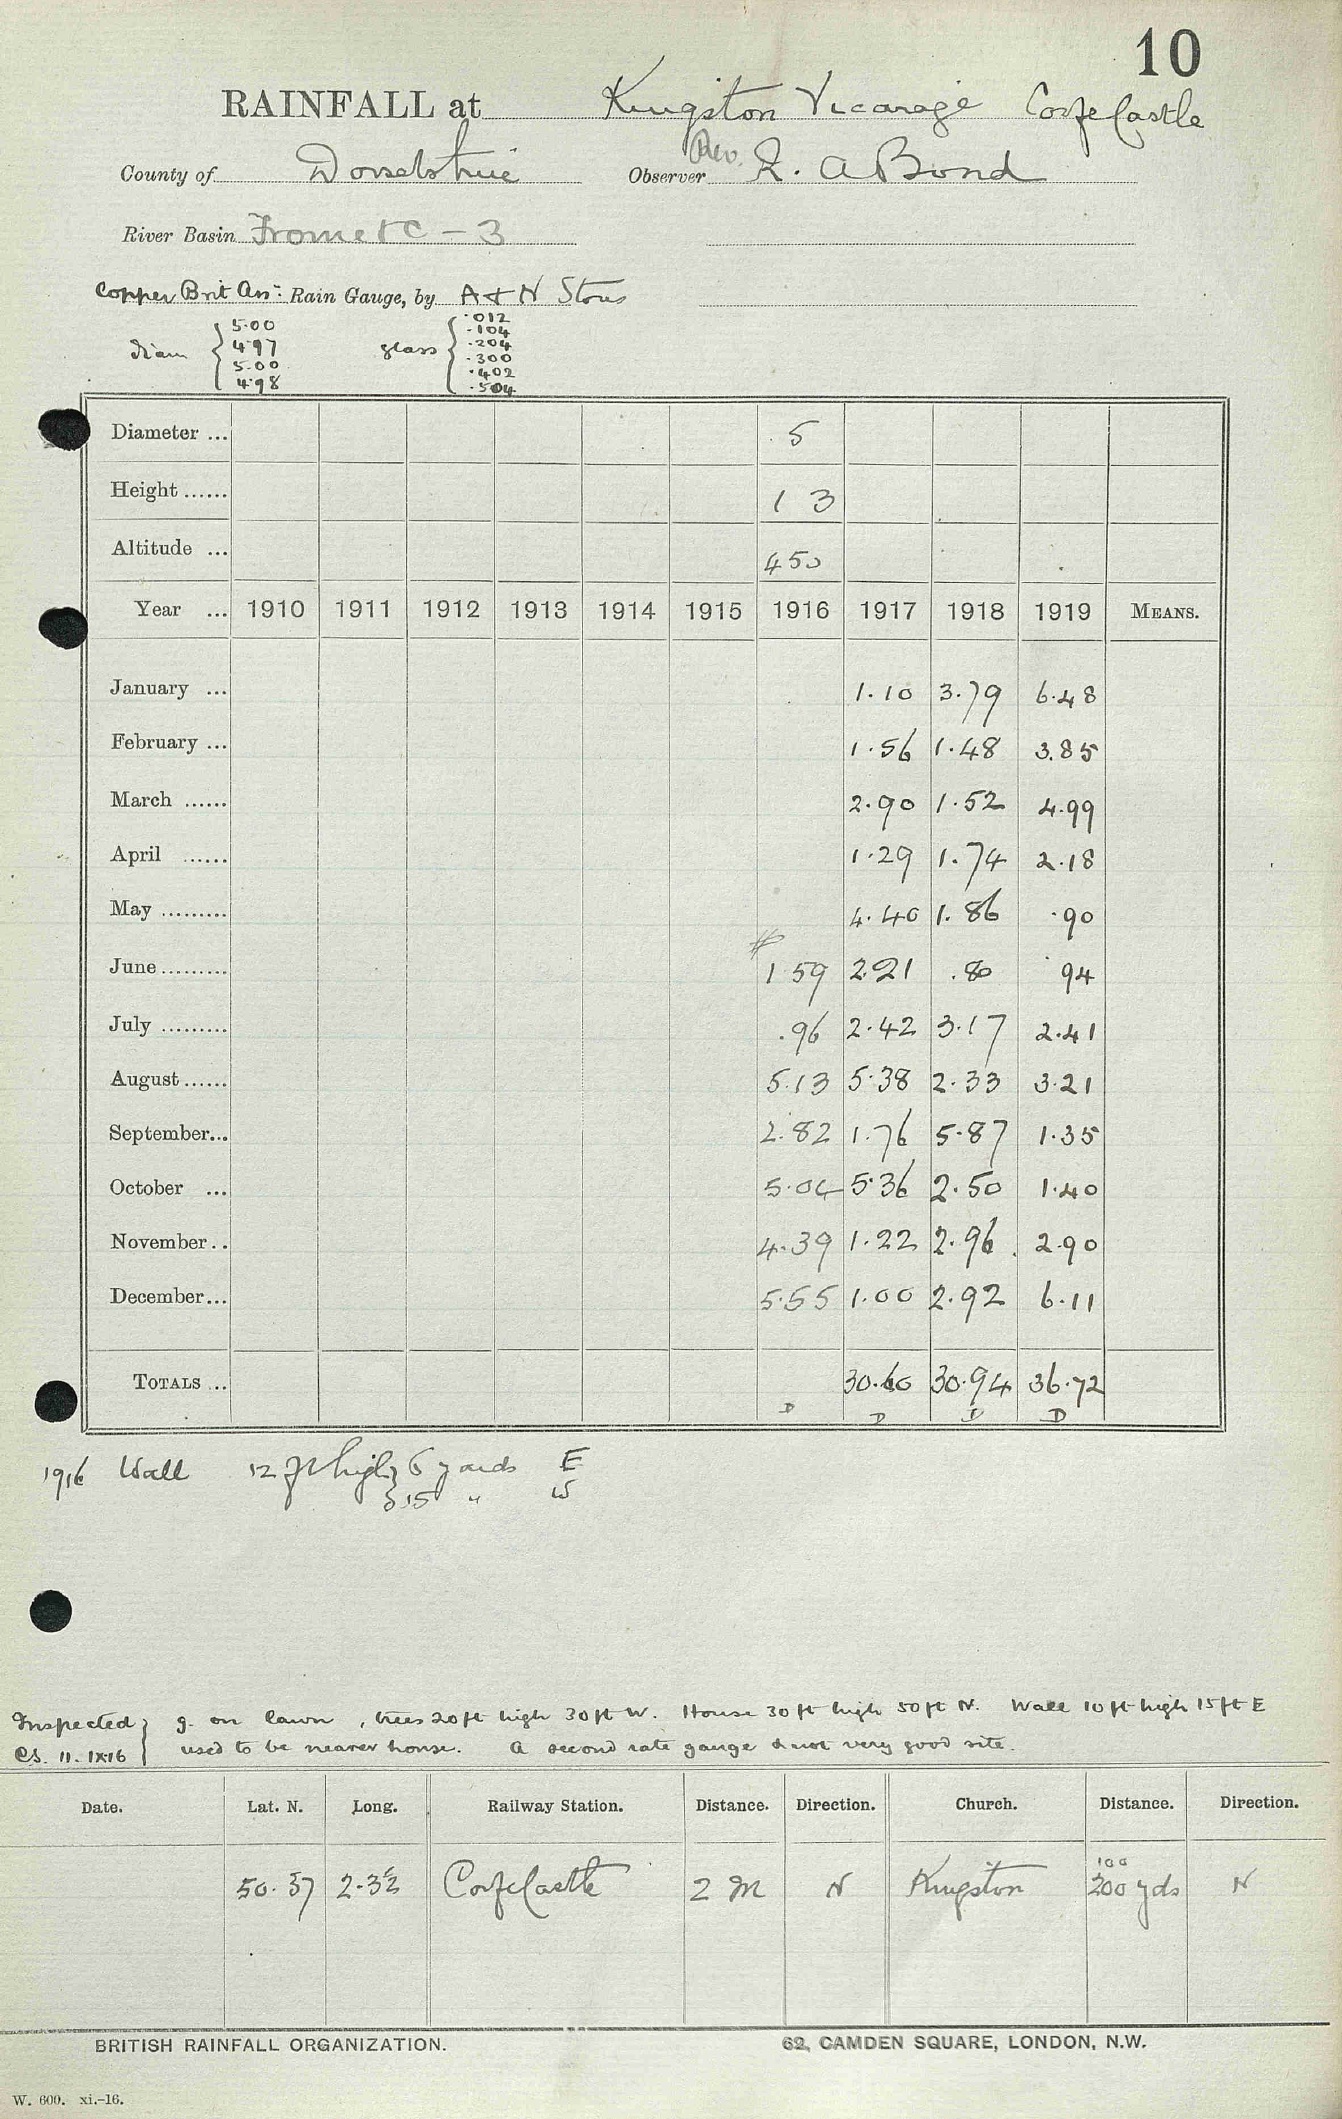 10
RAINFALL at Kingston Vicarage Corfe Castle
County of Dorsetshire Observer Rev. A Bond
River Basin Frome &c - 3
Copper Brit Assn: Rain Gauge, by A & N Stores
diam { 5.00 4.97 5.00 4.98 glass { .012 .104 .204 .300 .402 .504
Diameter ... 5
Height ...... 1 3
Altitude ... 450
Year ... 1910 1911 1912 1913 1914 1915 1916 1917 1918 1919 MEANS.
January ... 1.10 3.79 6.48
February ... 1.56 1.48 3.85
March ...... 2.90 1.52 4.99
April ...... 1.29 1.74 2.18
May ......... 4.40 1.86 .90
June ......... # 1 59 2.21 .80 94
July ......... .96 2.42 3.17 2.41
August ...... 5.13 5.38 2.33 3.21
September... 2.82 1.76 5.87 1.35
October ... 5.04 5.36 2.50 1.40
November .. 4.39 1.22 2.96 2.90
December... 5.55 1.00 2.92 6.11
TOTALS ... 30.60 30.94 36.72
D D D D
1916 Wall 12 ft high 6 yards E
15 " W
Inspected } g. on lawn, trees 20ft high 30ft W. House 30ft high 50ft N. Wall 10ft high 15ft E
CS. 11.IX.16 } used to be nearer house. A second rate gauge & not very good site.
Date. Lat. N. Long. Railway Station. Distance. Direction. Church. Distance. Direction.
100
50.37 Corfe Castle 2 M N Kingston 200 yds N
BRITISH RAINFALL ORGANIZATION. 62, CAMDEN SQUARE, LONDON, N.W.
W. 600. xi.-16.